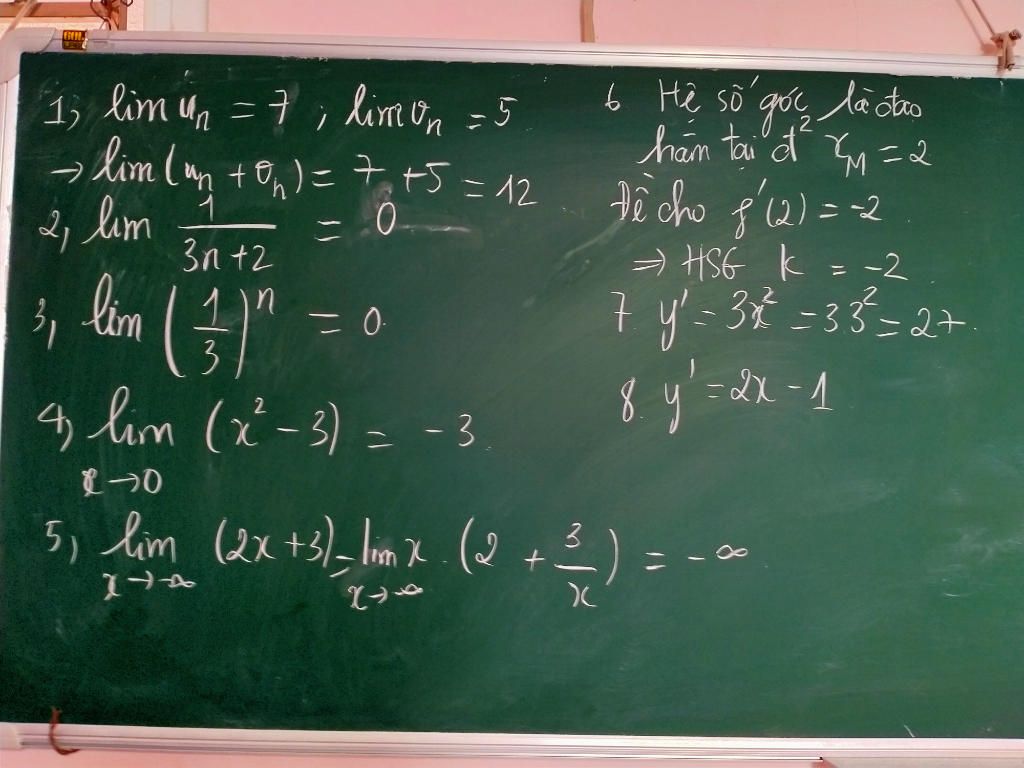 1, lim uₙ = 7 ; lim vₙ = 5
→ lim (uₙ + vₙ) = 7 + 5 = 12
2, lim 1/(3n+2) = 0
3, lim (1/3)ⁿ = 0.
4, lim (x² - 3) = -3.
x→0
5, lim (2x+3) = lim x . (2 + 3/x) = -∞
x→-∞ x→-∞
6 Hệ số góc là đạo
hàm tại đ² x_M = 2
Đề cho f'(2) = -2.
⇒ HSG k = -2
7. y' = 3x² = 3 3² = 27.
8. y' = 2x - 1